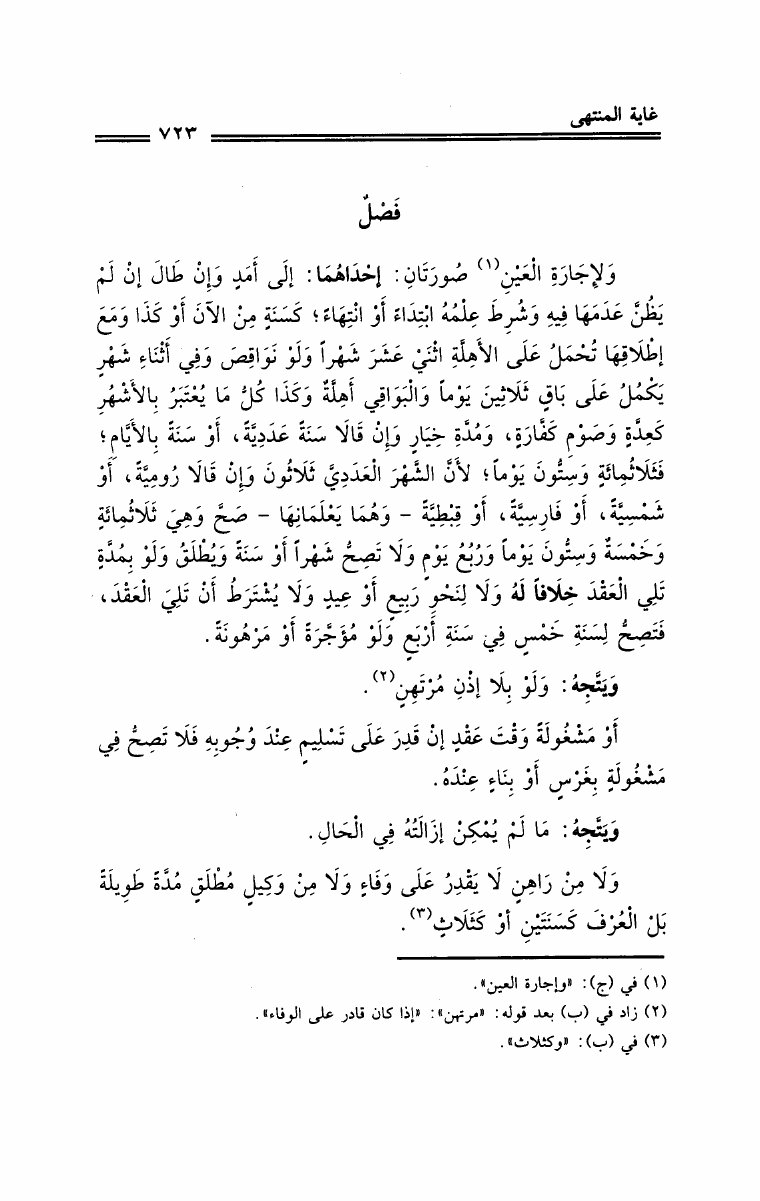 غاية المنتهى
٧٢٣
فَصْلٌ
وَلِإِجَارَةِ الْعَيْنِ(١) صُورَتَانِ: إحْدَاهُمَا: إلَى أَمَدٍ وَإِنْ طَالَ إنْ لَمْ
يَظُنَّ عَدَمَهَا فِيهِ وَشُرِطَ عِلْمُهُ ابْتِدَاءً أَوْ انْتِهَاءً؛ كَسَنَةٍ مِنْ الآنَ أَوْ كَذَا وَمَعَ
إطْلَاقِهَا تُحْمَلُ عَلَى الأَهِلَّةِ اثْنَيْ عَشَرَ شَهْراً وَلَوْ نَوَاقِصَ وَفِي أَثْنَاءِ شَهْرٍ
يَكْمُلُ عَلَى بَاقٍ ثَلَاثِينَ يَوْماً وَالْبَوَاقِي أَهِلَّةٌ وَكَذَا كُلُّ مَا يُعْتَبَرُ بِالأَشْهُرِ
كَعِدَّةٍ وَصَوْمِ كَفَّارَةٍ، وَمُدَّةِ خِيَارٍ وَإِنْ قَالَا سَنَةً عَدَدِيَّةً، أَوْ سَنَةً بِالأَيَّامِ؛
فَثَلَاثُمِائَةٍ وَسِتُّونَ يَوْماً؛ لأَنَّ الشَّهْرَ الْعَدَدِيَّ ثَلَاثُونَ وَإِنْ قَالَا رُومِيَّةً، أَوْ
شَمْسِيَّةً، أَوْ فَارِسِيَّةً، أَوْ قِبْطِيَّةً - وَهُمَا يَعْلَمَانِهَا - صَحَّ وَهِيَ ثَلَاثُمِائَةٍ
وَخَمْسَةٌ وَسِتُّونَ يَوْماً وَرُبُعُ يَوْمٍ وَلَا تَصِحُّ شَهْراً أَوْ سَنَةً وَيُطْلَقُ وَلَوْ بِمُدَّةٍ
تَلِي الْعَقْدَ خِلَافاً لَهُ وَلَا لِنَحْوِ رَبِيعٍ أَوْ عِيدٍ وَلَا يُشْتَرَطُ أَنْ تَلِيَ الْعَقْدَ،
فَتَصِحُّ لِسَنَةِ خَمْسٍ فِي سَنَةِ أَرْبَعٍ وَلَوْ مُؤَجَّرَةً أَوْ مَرْهُونَةً.
وَيَتَّجِهُ: وَلَوْ بِلَا إذْنِ مُرْتَهِنٍ(٢).
أَوْ مَشْغُولَةً وَقْتَ عَقْدٍ إنْ قَدِرَ عَلَى تَسْلِيمٍ عِنْدَ وُجُوبِهِ فَلَا تَصِحُّ فِي
مَشْغُولَةٍ بِغَرْسٍ أَوْ بِنَاءٍ عِنْدَهُ.
وَيَتَّجِهُ: مَا لَمْ يُمْكِنْ إزَالَتُهُ فِي الْحَالِ.
وَلَا مِنْ رَاهِنٍ لَا يَقْدِرُ عَلَى وَفَاءٍ وَلَا مِنْ وَكِيلٍ مُطْلَقٍ مُدَّةً طَوِيلَةً
بَلْ الْعُرْفَ كَسَنَتَيْنِ أوْ كَثَلَاثٍ(٣).
(١) في (ج): «وإجارة العين».
(٢) زاد في (ب) بعد قوله: «مرتهن»: «إذا كان قادر على الوفاء».
(٣) في (ب): «وكثلاث».